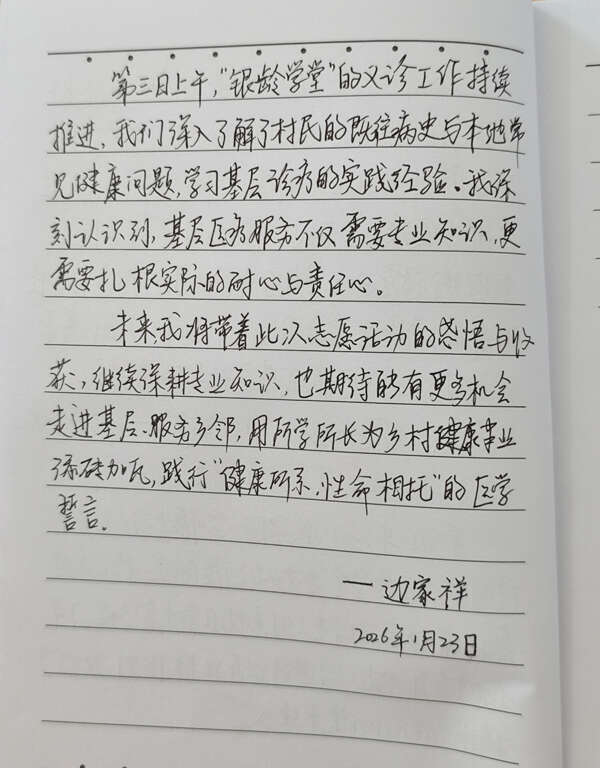 第三日上午，“银龄学堂”的义诊工作持续
推进，我们深入了解了村民的既往病史与本地常
见健康问题，学习基层诊疗的实践经验。我深
刻认识到，基层医疗服务不仅需要专业知识，更
需要扎根实际的耐心与责任心。
未来，我将带着此次志愿活动的感悟与收
获，继续深耕专业知识，也期待能有更多机会
走进基层、服务乡邻，用所学所长为乡村健康事业
添砖加瓦，践行“健康所系，性命相托”的医学
誓言。
——边家祥
2026年1月23日